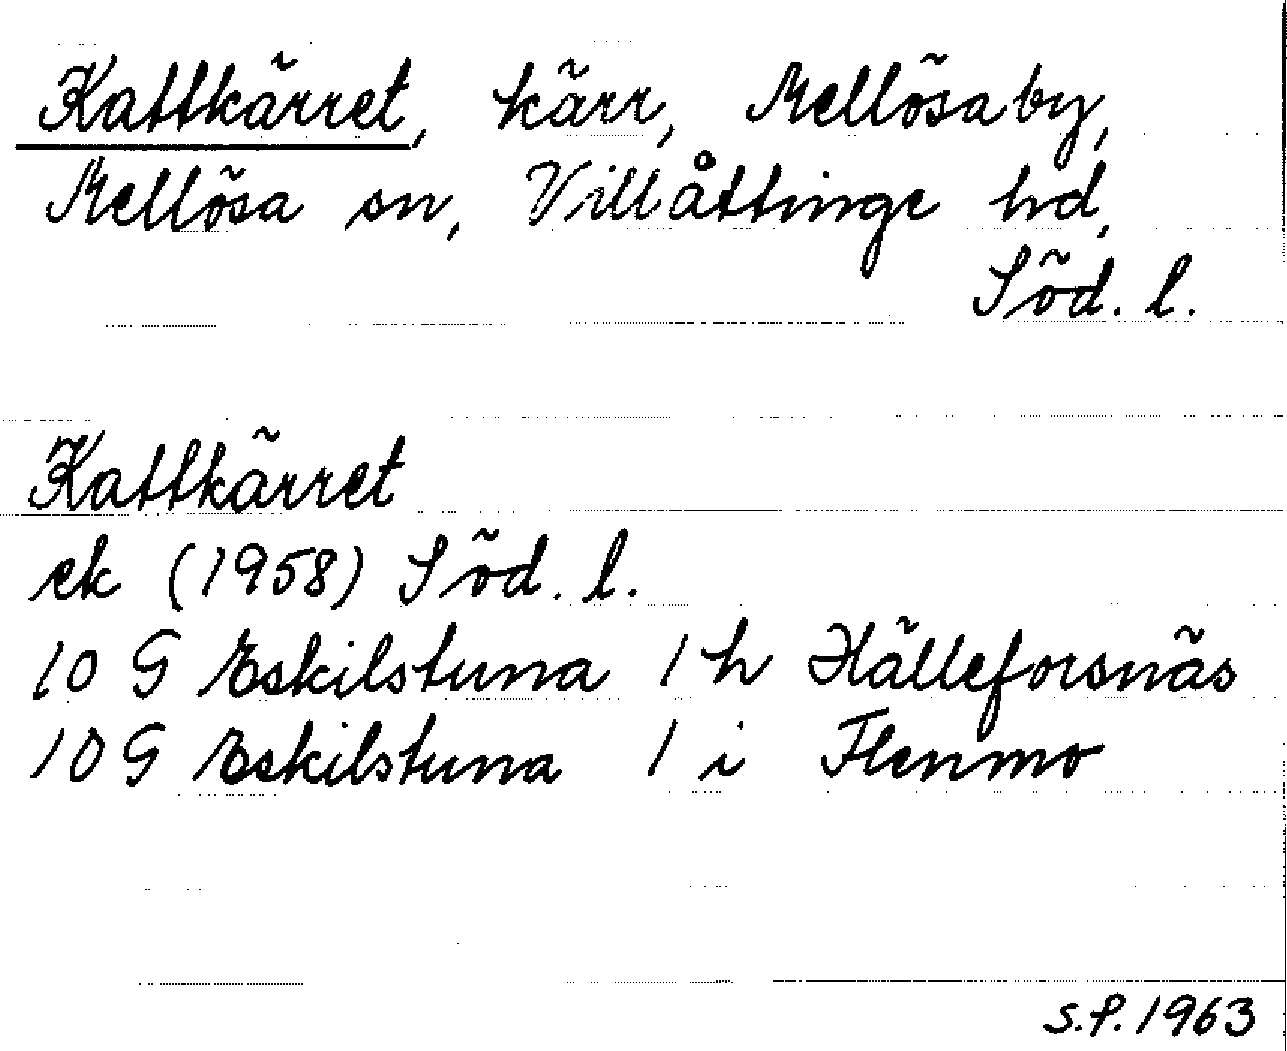 Kattkärret, kärr, Mellösaby,
Mellösa sn, Villåttinge hd,
Söd. l.
Kattkärret
ek (1958) Söd. l.
10 G Eskilstuna 1 h Hälleforsnäs
10 G Eskilstuna 1 i Flenmo
S.P. 1963